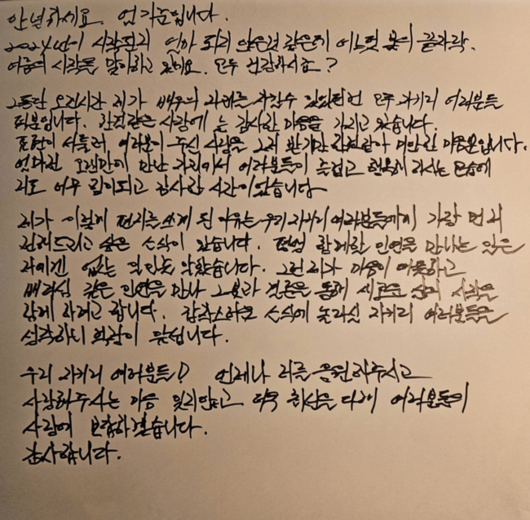 안녕하세요 엄기준입니다.
2024년이 시작된지 얼마 되지 않은것 같은데 어느덧 봄의 끝자락.
여름의 시작을 맞이하고 있네요. 모두 건강하시죠?
그동안 오랜시간 제가 배우의 자리를 지킬수 있었던건 모두 자기리 여러분들
덕분입니다. 한결같은 사랑에 늘 감사한 마음을 가지고 있습니다.
표현이 서툴러, 여러분이 주신 사랑을 그저 받기만 한것같아 미안한 마음뿐입니다.
얼마전 오랜만에 만난 자리에서 여러분들이 즐겁고 행복해 하시는 모습에
저도 너무 힘이되고 감사한 시간이었습니다
제가 이렇게 편지를 쓰게 된 이유는 우리 자기리 여러분들에게 가장 먼저
전해드리고 싶은 소식이 있습니다. 평생 함께할 인연을 만나는 일은
저에겐 없는 일인줄 알았습니다. 그런 제가 마음이 따뜻하고
배려심 깊은 인연을 만나 그분과 결혼을 통해 새로운 삶의 시작을
함께 하려고 합니다. 갑작스러운 소식에 놀라실 자기리 여러분들을
생각하니 걱정이 앞섭니다.
우리 자기리 여러분들! 언제나 저를 응원해주시고
사랑해주시는 마음 잊지않고 더욱 최선을 다해 여러분들의
사랑에 보답하겠습니다.
감사합니다.